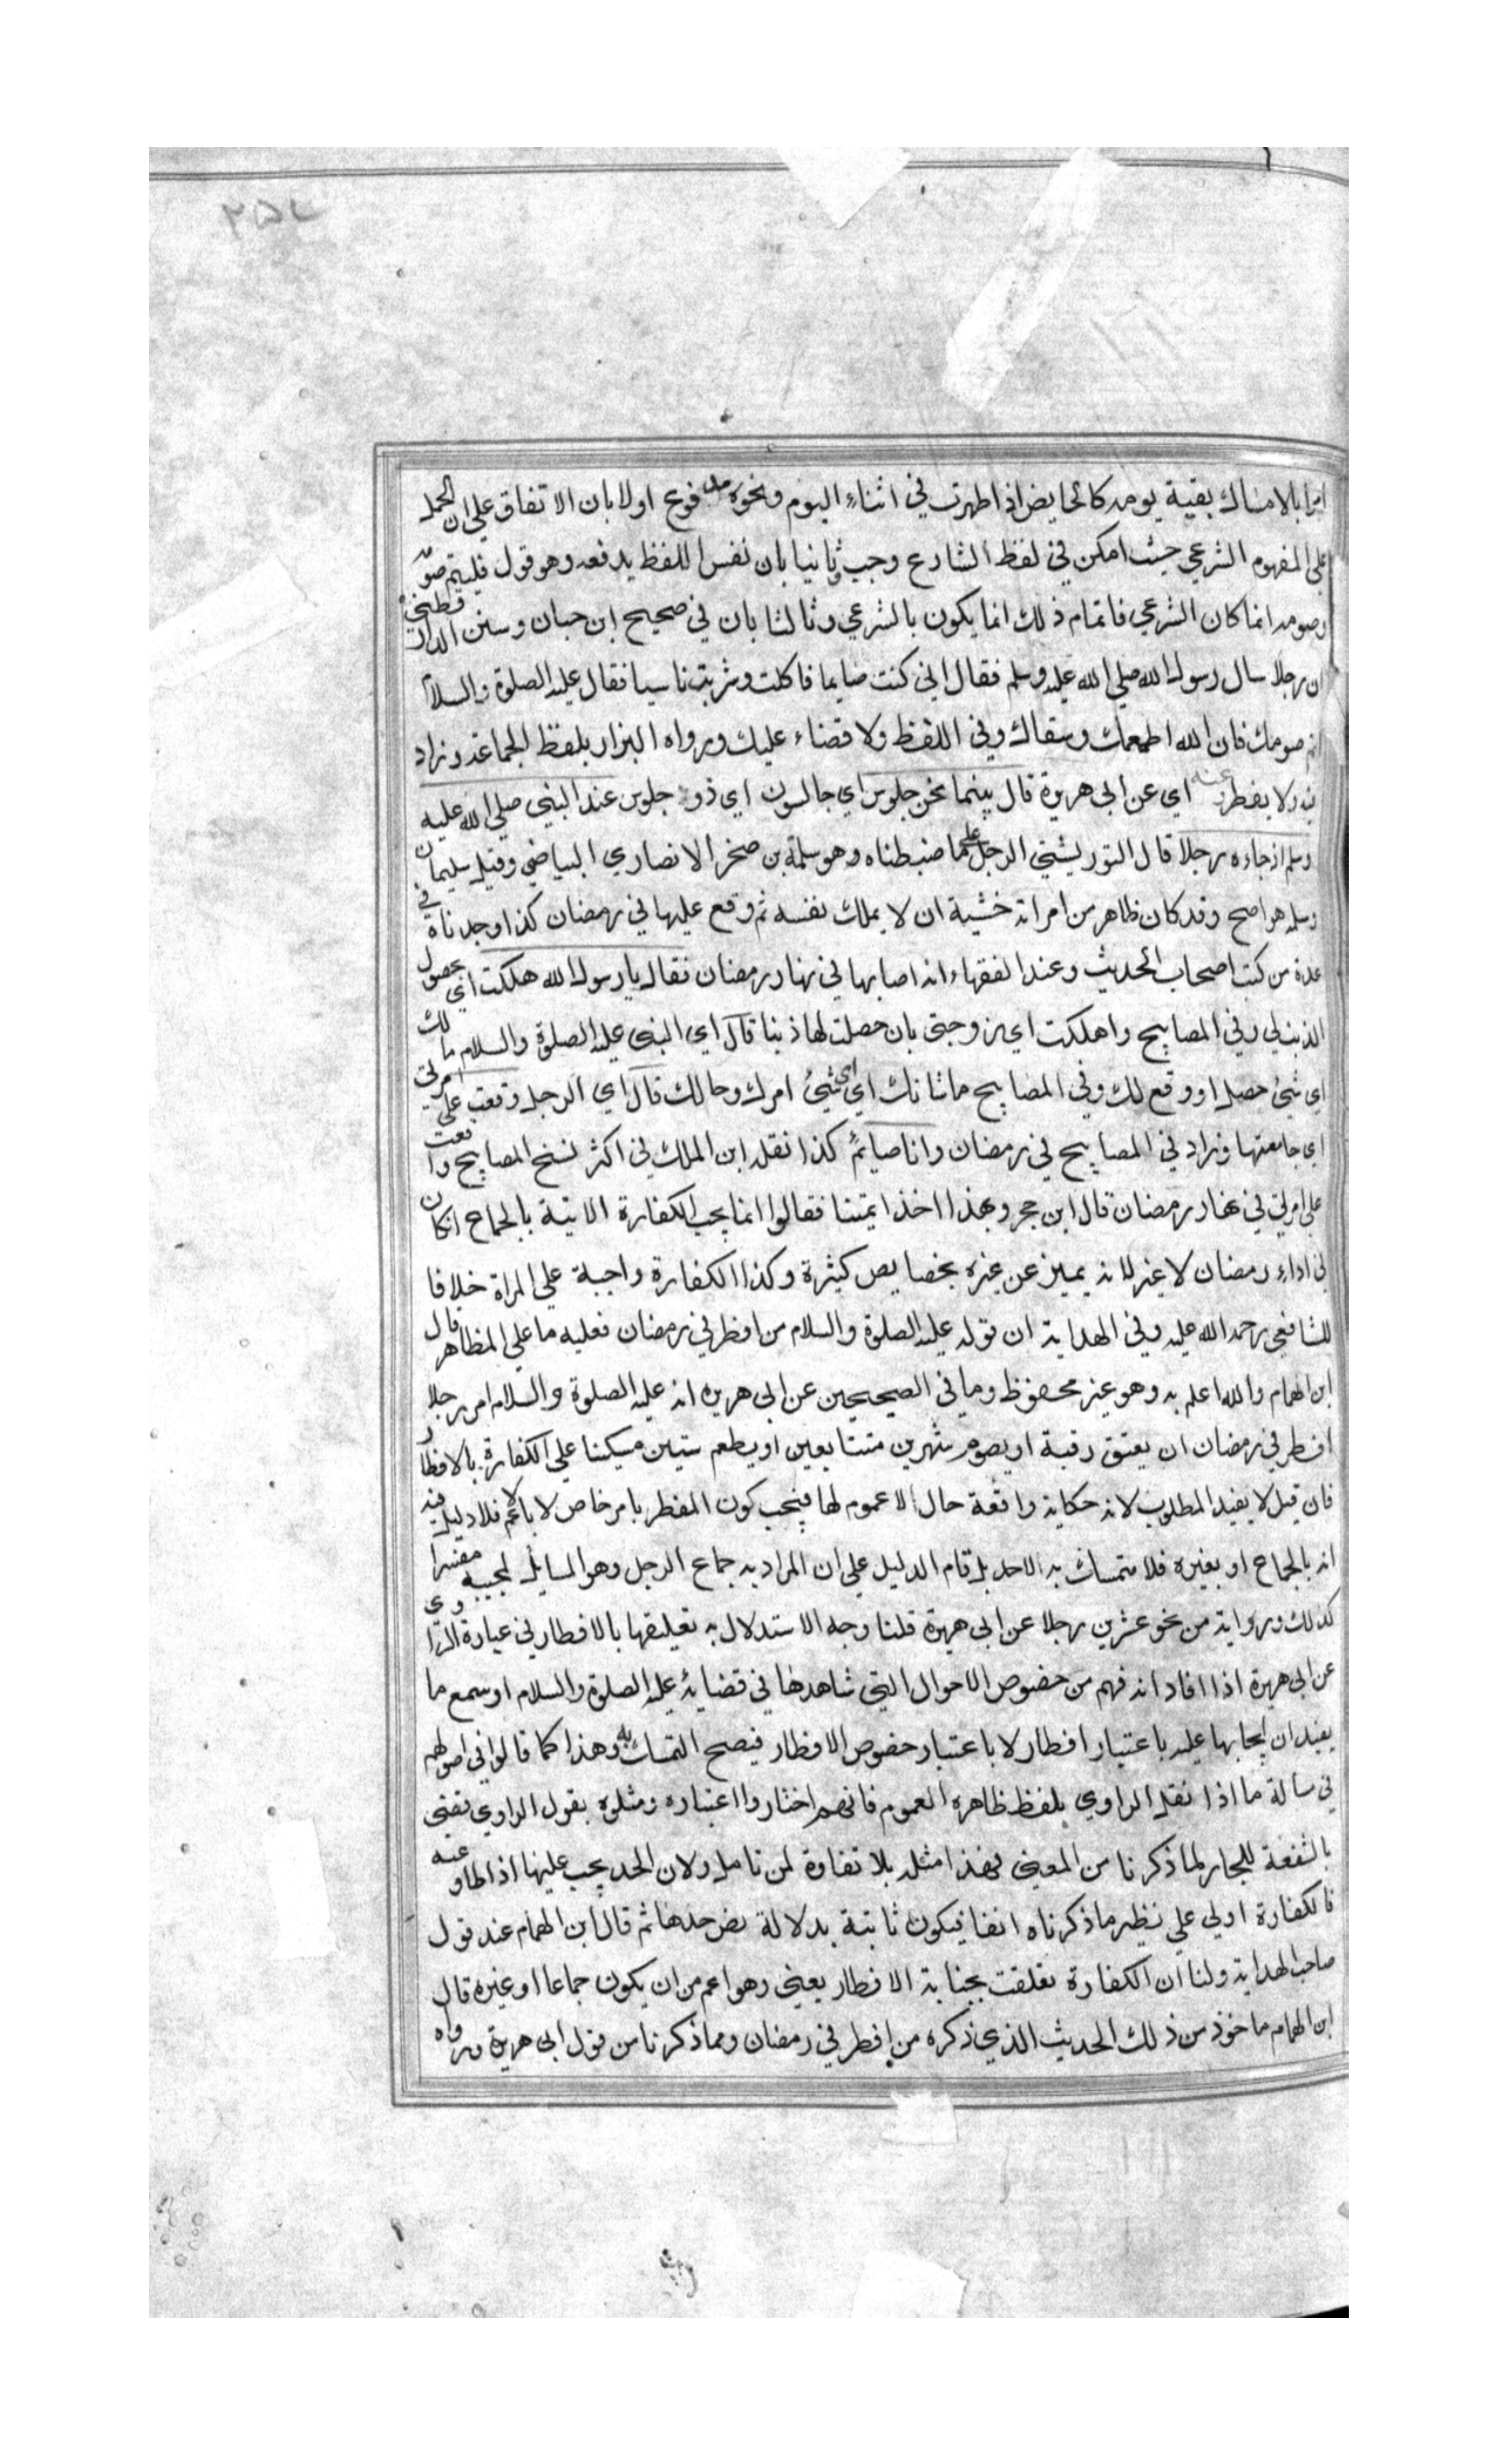 ٢٥٧
امرا بالامساك بقية يومه كالحايض اذا طهرت في اثناء اليوم ونحوه مدفوع اولا بان الاتفاق على ان الحمل
على المفهوم الشرعي حيث امكن في لفظ الشارع وجب وثانيا بان نفس اللفظ يدفعه وهو قول فليتم صومه
وصومه انما كان الشرعي فاتمام ذلك انما يكون بالشرعي وثالثا بان في صحيح ابن حبان وسنن الدارقطني
ان رجلا سال رسول الله صلي الله عليه وسلم فقال اني كنت صايما فاكلت وشربت ناسيا فقال عليه الصلوة والسلام
اتم صومك فان الله اطعمك وسقاك وفي اللفظ ولا قضاء عليك ورواه البزار بلفظ الجماعة وزاد
فيه ولا يفطر وعنه اي عن ابي هريرة قال بينما نحن جلوس اي جالسون اي ذو جلوس عند النبي صلي الله عليه
وسلم اذ جاءه رجلا قال التوربشتي الرجل على ما ضبطناه وهو سلمة بن صخر الانصاري البياضي وقيل سليمان
وسلمه هو اصح وقد كان ظاهر من امراته خشية ان لا يملك نفسه ثم وقع عليها في رمضان كذا وجدناه في
عدة من كتب اصحاب الحديث وعند الفقهاء انه اصابها في نهار رمضان فقال يارسول الله هلكت اي بحصول
الذنب لي وفي المصابيح واهلكت اي زوجتي بان حصلت لها ذنبا قال اي النبي عليه الصلوة والسلام ما لك
اي شيئ حصل او وقع لك وفي المصابيح ما شانك اي اي شيئ امرك وحالك قال اي الرجل وقعت علي امرتي
اي جامعتها وزاد في المصابيح في رمضان وانا صايم كذا نقله ابن الملك في اكثر نسخ المصابيح واقعت
على امرتي في نهار رمضان قال ابن حجر وبهذا اخذ ايمتنا فقالوا انما يجب الكفارة الاتية بالجماع ان كان
في اداء رمضان لا غير لانه يميز عن غيره بخصايص كثيرة وكذا الكفارة واجبة علي المراة خلافا
للشافعي رحمه الله عليه وفي الهداية ان قوله عليه الصلوة والسلام من افطر في رمضان فعليه ما علي المظاهر قال
ابن الهمام والله اعلم به وهو غير محفوظ وما في الصحيحين عن ابي هريره انه عليه الصلوة والسلام امر رجلا
افطر في رمضان ان يعتق رقبة او يصوم شهرين متتابعين او يطعم ستين مسكينا علي الكفارة بالافطار
فان قيل لا يفيد المطلوب لانه حكاية واقعة حال لا عموم لها فيجب كون المفطر بامر خاص لا بالاعم فلا دليل فيه
انه بالجماع او بغيره فلا متمسك به لاحد بل قام الدليل على ان المراد به جماع الرجل وهو السايل لمجيئه مفسرا
كذلك ورواية من نحو عشرين رجلا عن ابي هريرة قلنا وجه الاستدلال به تعليقها بالافطار في عبارة الراوي
عن ابي هريرة اذا افاد انه فهم من خصوص الاحوال التي شاهدها في قضايه عليه الصلوة والسلام او سمع ما
يفيد ان ايجابها عليه باعتبار افطار لا باعتبار خصوص الافطار فيصح التمسك به وهذا كما قالوا في اصولهم
في سالة ما اذا نقل الراوي بلفظ ظاهره العموم فانهم اختاروا اعتباره ومثلوه بقول الراوي قضي
بالشفعة للجار لما ذكرنا من المعنى فهذا مثله بلا تفاوة لمن تامل ولان الحد يجب عليها اذا طاوعته
فالكفارة اولي علي نظير ما ذكرناه انفا فيكون ثابتة بدلالة نص حدها ثم قال ابن الهمام عند قول
صاحب الهداية ولنا ان الكفارة تعلقت بجناية الافطار يعني وهو اعم من ان يكون جماعا او غيره قال
ابن الهمام ماخوذ من ذلك الحديث الذي ذكره من افطر في رمضان ومما ذكرنا من قول ابي هريرة ورواه